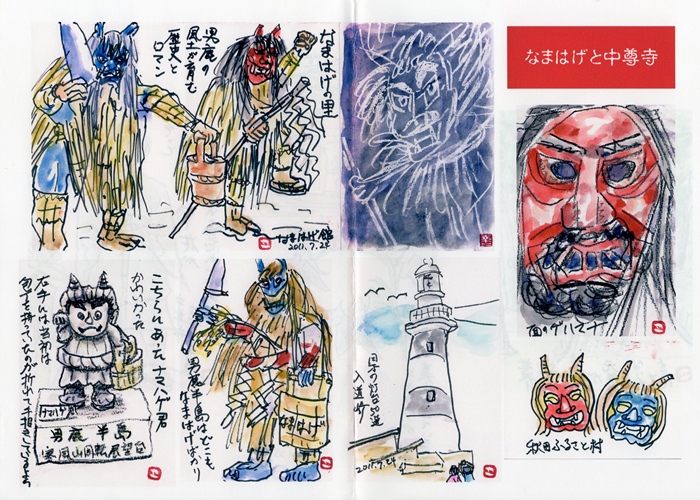 なまはげと中尊寺
なまはげの里
男鹿の
風土が育む
歴史と
ロマン
なまはげ館
2011.7.24
面のゲハマナ
こちらにあったナマハゲ君
かわいかった
左手には当初は
包丁を持っていたが折れて
ナマハゲ君
男鹿半島
寒風山回転展望台
男鹿半島はどこも
なまはげばかり
なまはげ
日本の灯台50選
入道崎
2011.7.24
秋田ふるさと村